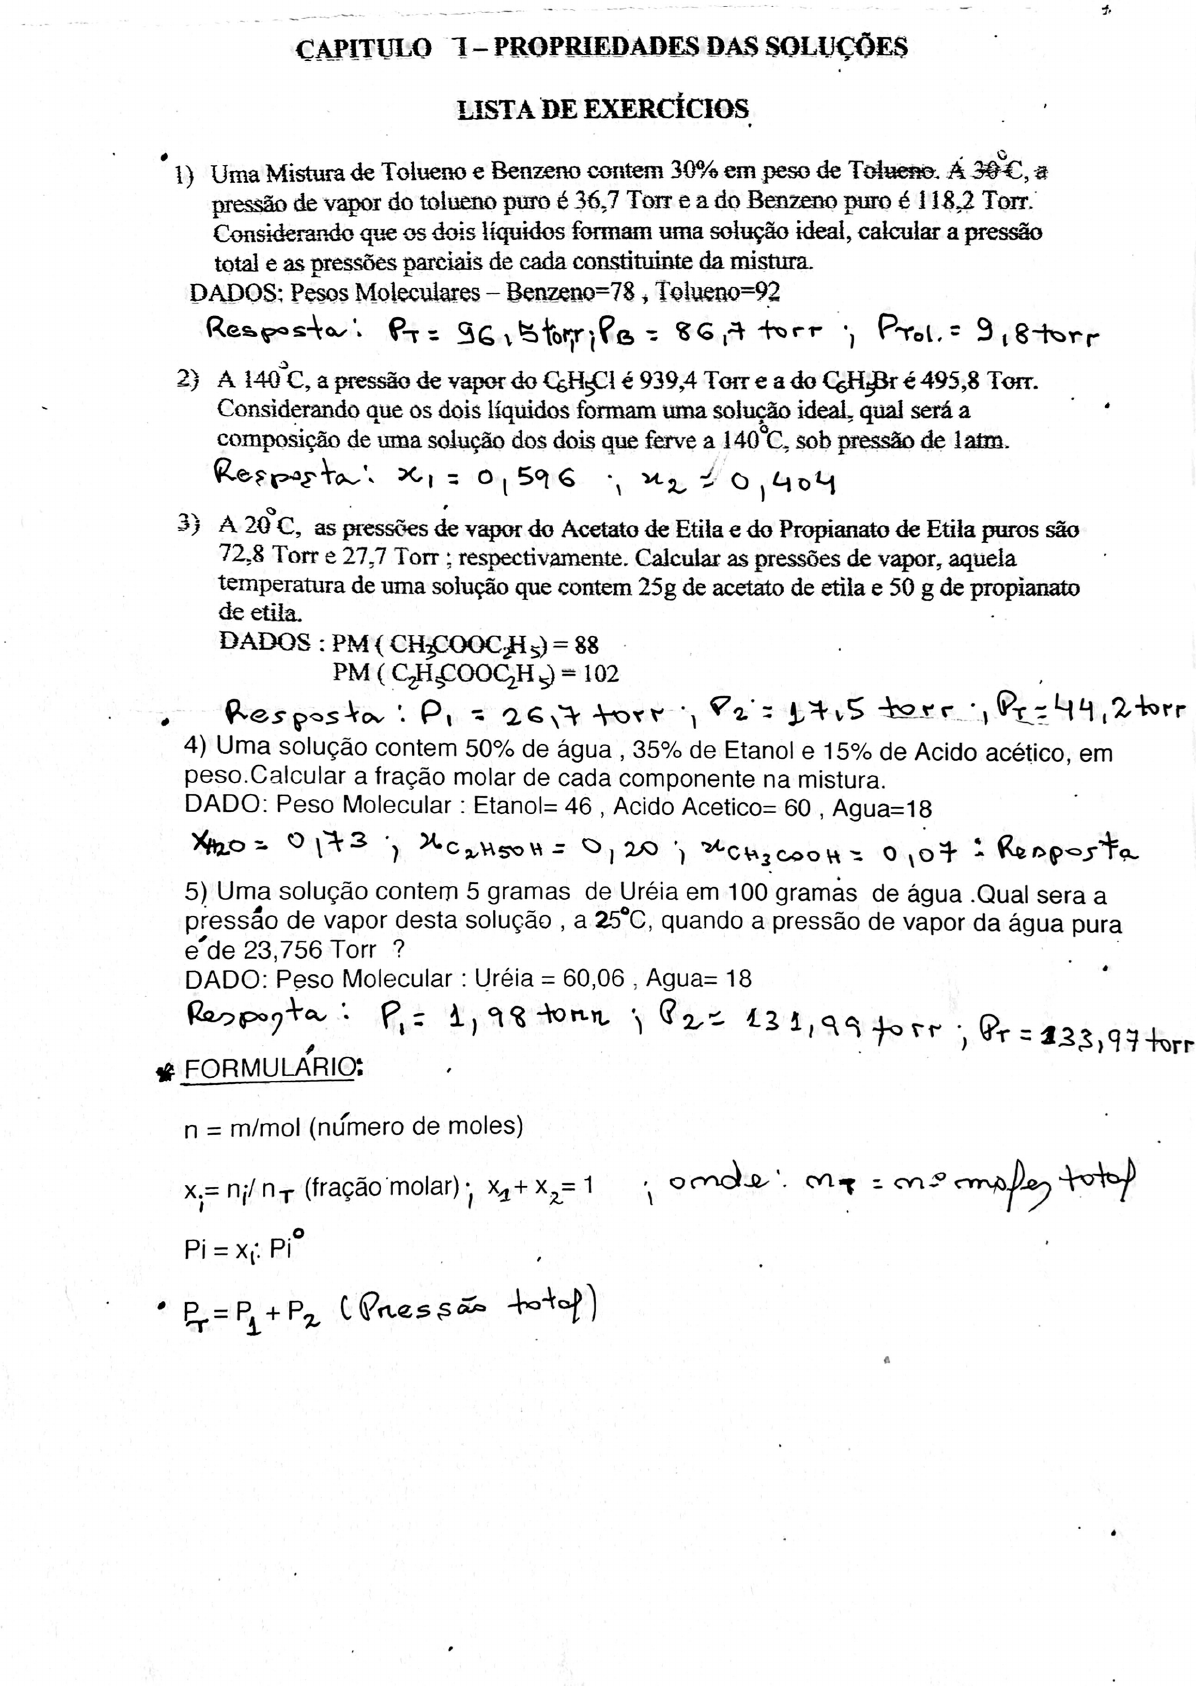 CAPITULO 1 – PROPRIEDADES DAS SOLUÇÕES
LISTA DE EXERCÍCIOS
1) Uma Mistura de Tolueno e Benzeno contem 30% em peso de Tolueno. Á 30°C, a
pressão de vapor do tolueno puro é 36,7 Torr e a do Benzeno puro é 118,2 Torr.
Considerando que os dois líquidos formam uma solução ideal, calcular a pressão
total e as pressões parciais de cada constituinte da mistura.
DADOS: Pesos Moleculares – Benzeno=78 , Tolueno=92
Resposta: PT = 96,5 torr; PB = 86,7 torr ; PTol. = 9,8 torr
2) A 140°C, a pressão de vapor do C6H5Cl é 939,4 Torr e a do C6H5Br é 495,8 Torr.
Considerando que os dois líquidos formam uma solução ideal, qual será a
composição de uma solução dos dois que ferve a 140°C, sob pressão de 1atm.
Resposta: x1 = 0,596 ; x2 = 0,404
3) A 20°C, as pressões de vapor do Acetato de Etila e do Propianato de Etila puros são
72,8 Torr e 27,7 Torr ; respectivamente. Calcular as pressões de vapor, aquela
temperatura de uma solução que contem 25g de acetato de etila e 50 g de propianato
de etila.
DADOS : PM ( CH3COOC2H5) = 88
PM ( C2H5COOC2H5) = 102
Resposta: P1 = 26,7 torr ; P2 = 17,5 torr ; PT = 44,2 torr
4) Uma solução contem 50% de água , 35% de Etanol e 15% de Acido acético, em
peso.Calcular a fração molar de cada componente na mistura.
DADO: Peso Molecular : Etanol= 46 , Acido Acetico= 60 , Agua=18
XH2O = 0,73 ; xC2H5OH = 0,20 ; xCH3COOH = 0,07 : Resposta
5) Uma solução contem 5 gramas de Uréia em 100 gramas de água .Qual sera a
pressão de vapor desta solução , a 25°C, quando a pressão de vapor da água pura
e´de 23,756 Torr ?
DADO: Peso Molecular : Uréia = 60,06 , Agua= 18
Resposta : P1 = 1,98 torr ; P2 = 131,99 torr ; PT = 133,97 torr
* FORMULÁRIO:
n = m/mol (número de moles)
xi= ni/ nT (fração molar) ; x1 + x2= 1 ; onde: nT = nº moles total
Pi = xi. Pi°
PT = P1 + P2 (Pressão total)